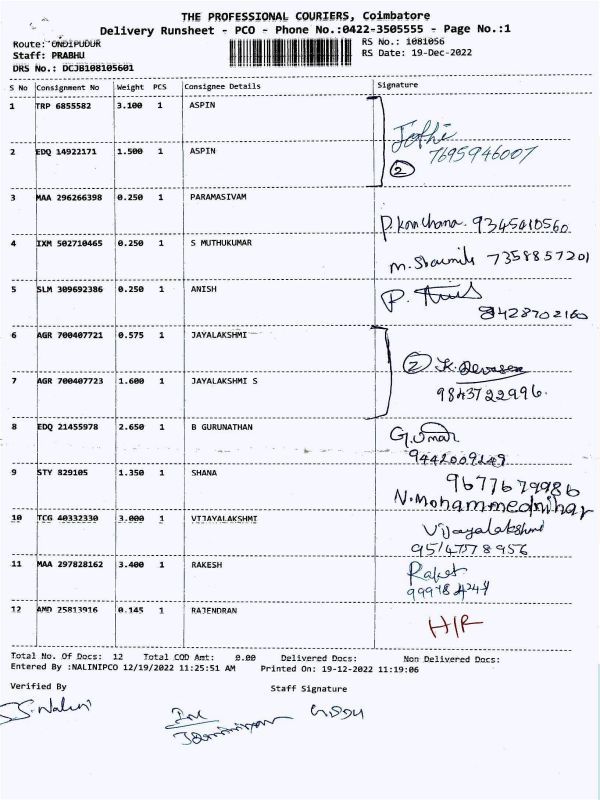 THE PROFESSIONAL COURIERS, Coimbatore
Delivery Runsheet - PCO - Phone No.:0422-3505555 - Page No.:1
Route: ONDIPUDUR
RS No.: 1081056
Staff: PRABHU
RS Date: 19-Dec-2022
DRS No.: DCJB108105601
S No Consignment No Weight PCS Consignee Details Signature
1 TRP 6855582 3.100 1 ASPIN
Jothi
7695946007
2 EDQ 14922171 1.500 1 ASPIN
2
3 MAA 296266398 0.250 1 PARAMASIVAM
P. Kanchana. 9345010560
4 IXM 502710465 0.250 1 S MUTHUKUMAR
M. Sharmila 7358857201
5 SLM 309692386 0.250 1 ANISH
P.
8428702160
6 AGR 700407721 0.575 1 JAYALAKSHMI
2 K. Devasena
7 AGR 700407723 1.600 1 JAYALAKSHMI S
9843722996.
8 EDQ 21455978 2.650 1 B GURUNATHAN
G. Umar
9442009249
9 STY 829105 1.350 1 SHANA
9677679986
N. Mohammed nihar
10 TCG 40332330 3.000 1 VIJAYALAKSHMI
Vijayalakshmi
9514778956
11 MAA 297828162 3.400 1 RAKESH
Rakesh
12 AMD 25813916 0.145 1 RAJENDRAN
H/R
Total No. Of Docs: 12 Total COD Amt: 0.00 Delivered Docs: Non Delivered Docs:
Entered By :NALINIPCO 12/19/2022 11:25:51 AM Printed On: 19-12-2022 11:19:06
Verified By Staff Signature
S.S. Nalini